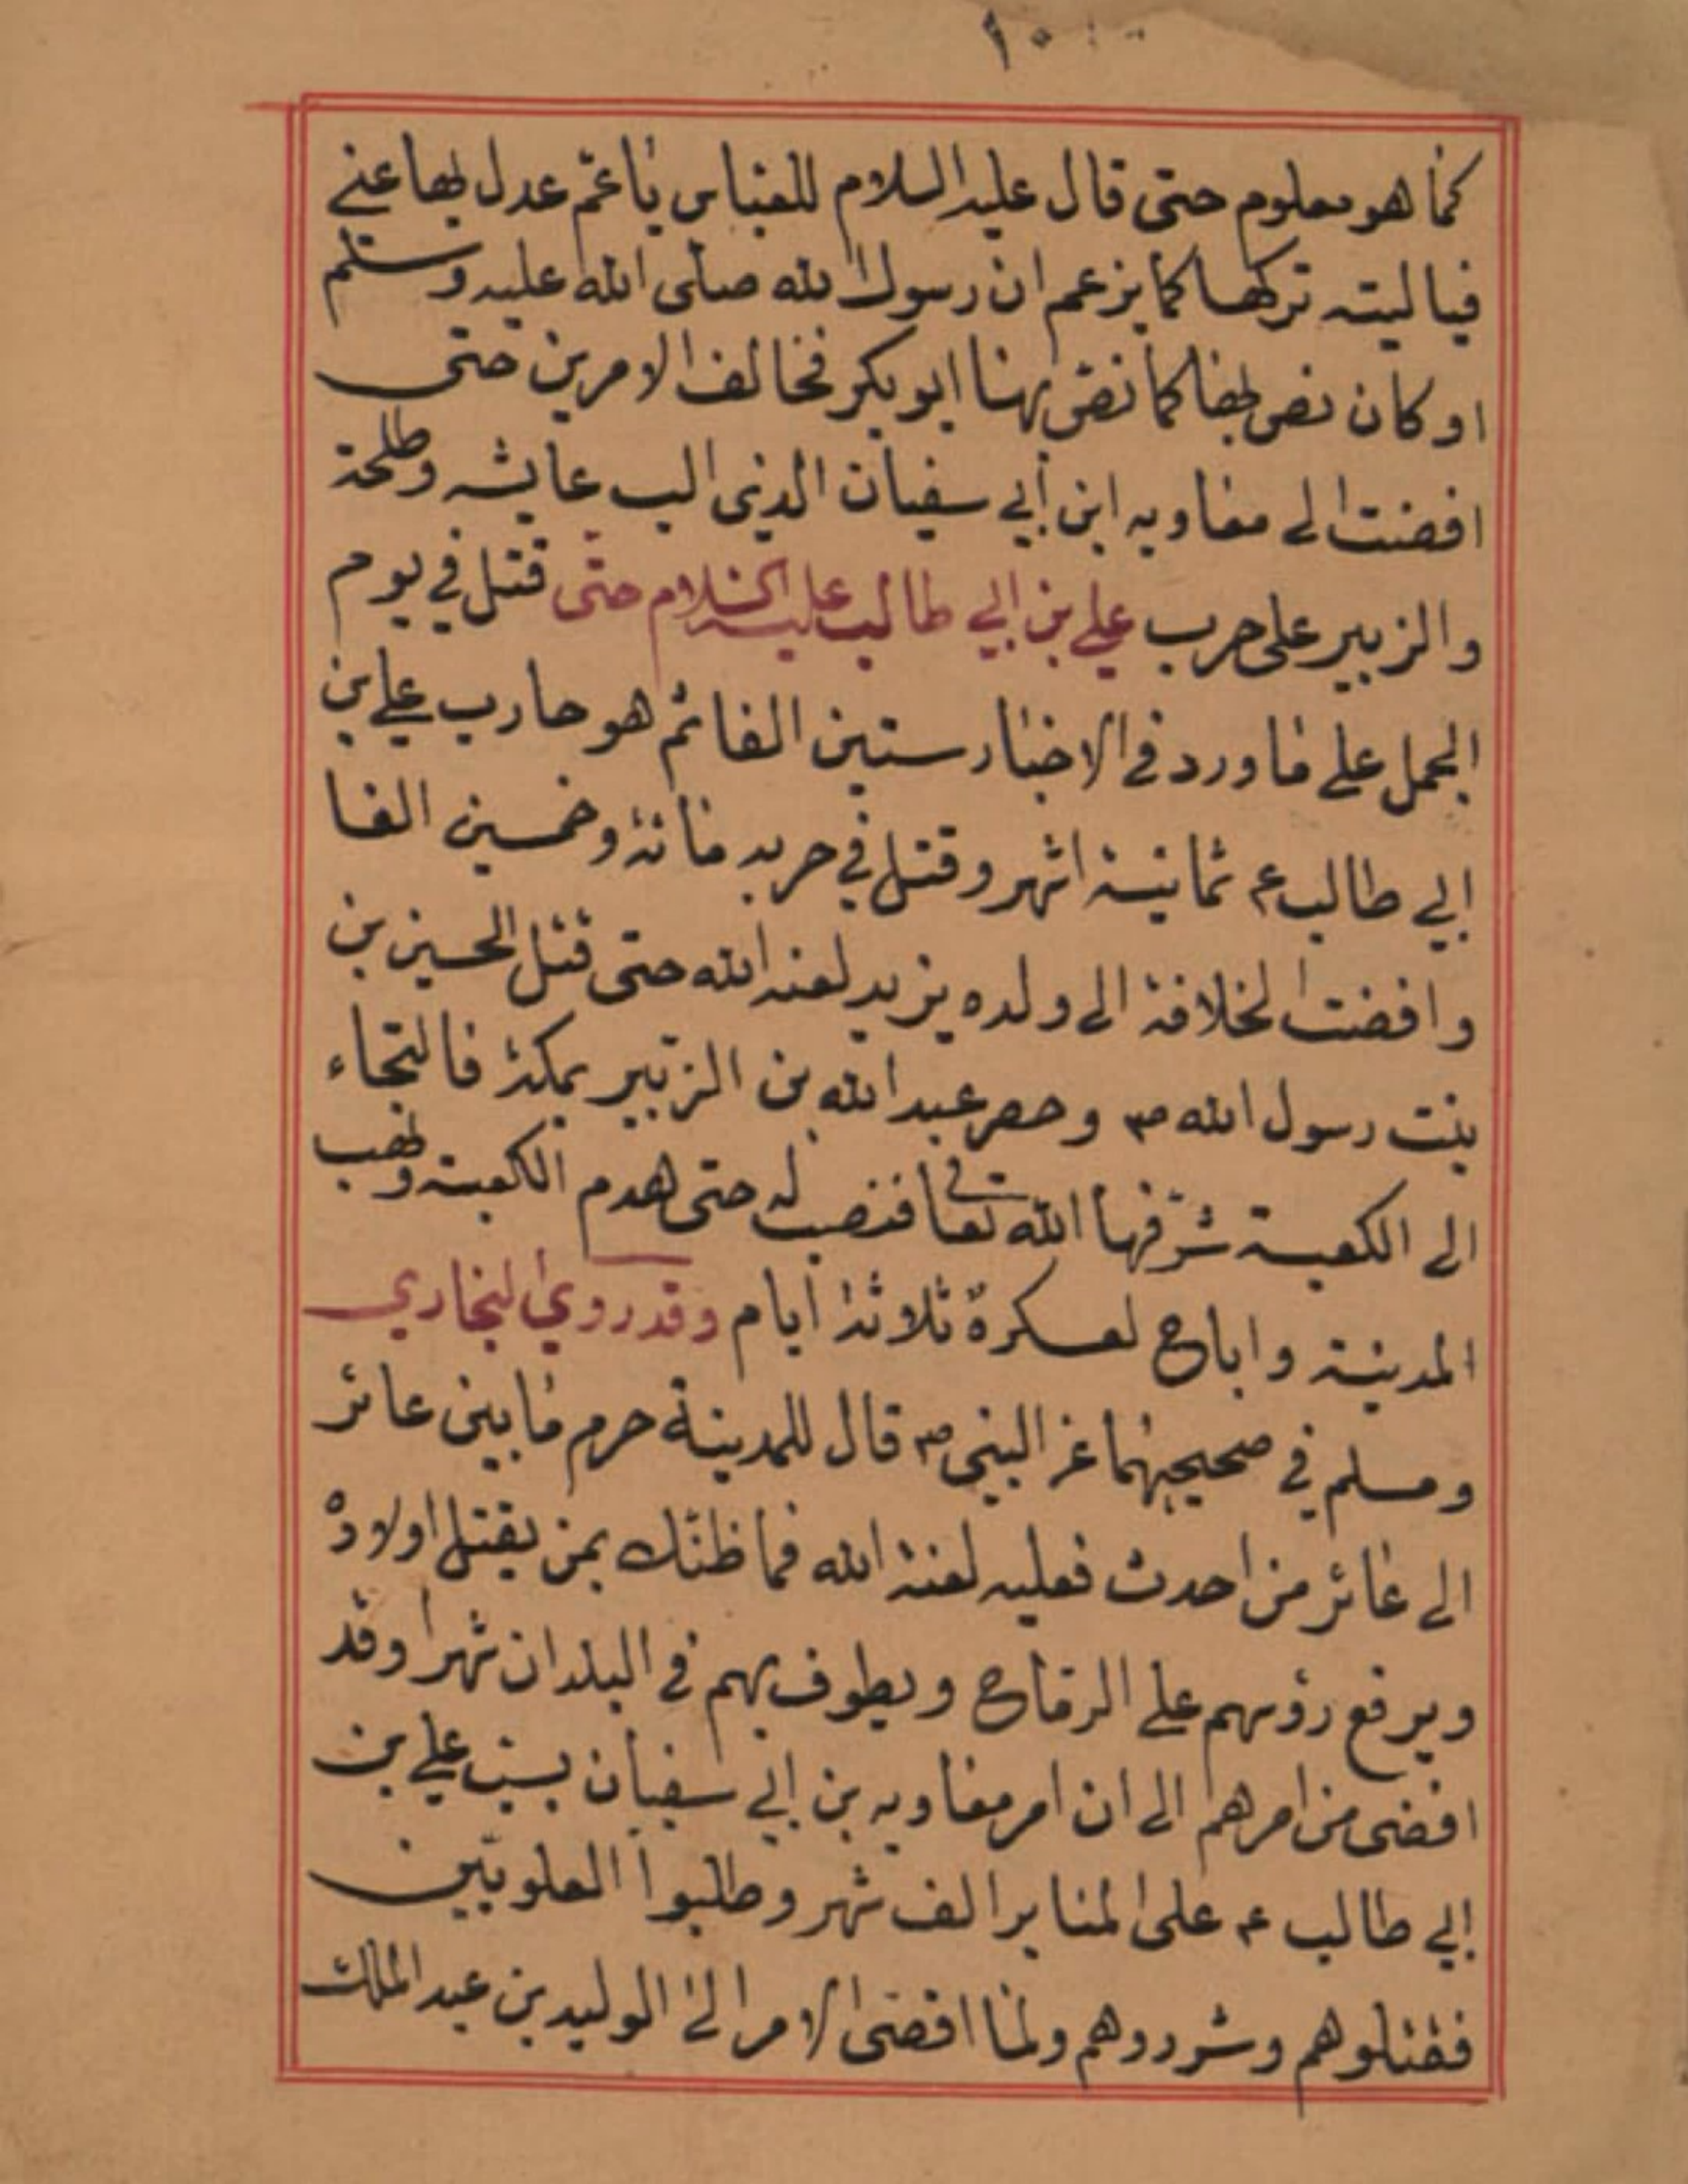 ١٠
كما هو معلوم حتى قال عليه السلام للعباس يا عم عدل بها عني
فياليته تركها كما يزعم ان رسول الله صلى الله عليه وسلم
او كان نص بها كما نص بها ابو بكر فخالف الامرين حتى
افضت الى معاويه ابن أبي سفيان الذي الب عايشه وطلحة
والزبير على حرب علي بن ابي طالب عليه السلام حتى قتل في يوم
الجمل على ما ورد في الاخبار ستين الفا ثم هو حارب علي بن
ابي طالب ع ثمانية اشهر وقتل في حربه مائة وخمسين الفا
وافضت الخلافة الى ولده يزيد لعنه الله حتى قتل الحسين بن
بنت رسول الله ص وحصر عبد الله بن الزبير بمكة فالتجاء
الى الكعبة شرفها الله تعالى فنصب له حتى هدم الكعبة ونهب
المدينة واباح لعسكره ثلاثة ايام وقد روي البخاري
ومسلم في صحيحيهما عن النبي ص قال للمدينة حرم ما بين عائر
الى عائر من احدث فعليه لعنة الله فما ظنك بمن يقتل اولاده
ويرفع رؤسهم على الرماح ويطوف بهم في البلدان شهرا وقد
افضى من امرهم الى ان امر معاويه بن ابي سفيان بسب علي بن
ابي طالب ع على المنابر الف شهر وطلبوا العلويين
فقتلوهم وشردوهم ولما افضى الامر الى الوليد بن عبد الملك